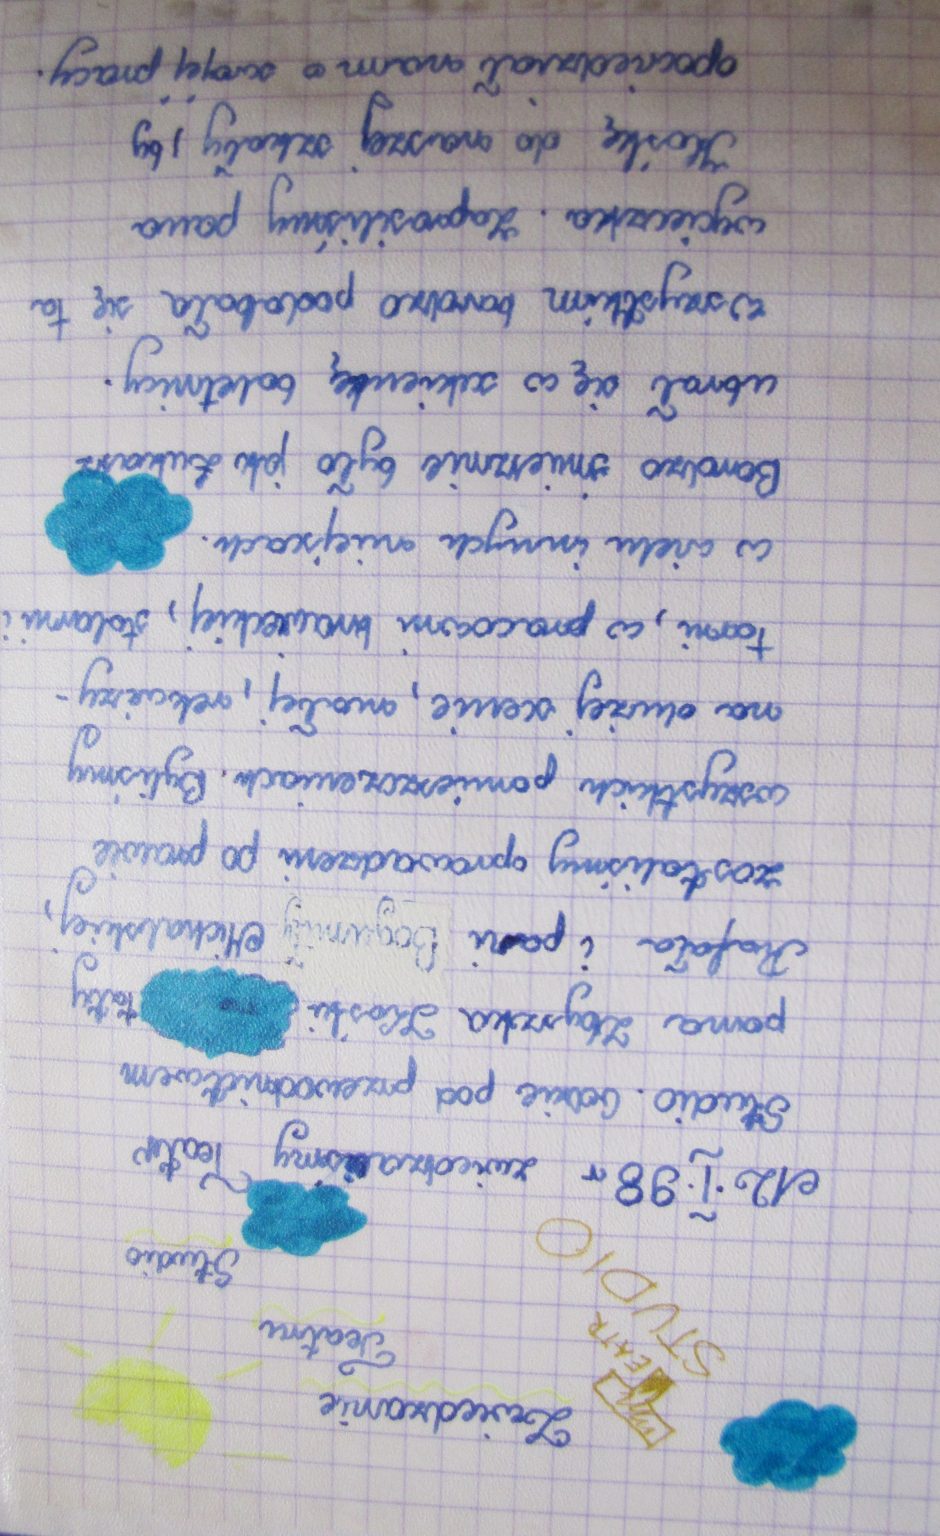 Zwiedzanie
Teatru
Studio
TEATR
STUDIO
12.I.98r zwiedzaliśmy Teatr
Studio. Gdzie pod przewodnictwem
pana Zbyszka Kloski taty
Rafała i pani Bogumiły Michalskiej,
zostaliśmy oprowadzeni po prawie
wszystkich pomieszczeniach. Byliśmy
na dużej scenie, małej, rekwizy-
torni, w pracowni krawieckiej, stolarni i
w wielu innych miejscach.
Bardzo śmiesznie było jak Łukasz
ubrał się w sukienkę baletnicy.
Wszystkim bardzo podobała się ta
wycieczka. Zaprosiliśmy pana
Kloskę do naszej szkoły, by
opowiedział nam o swojej pracy.